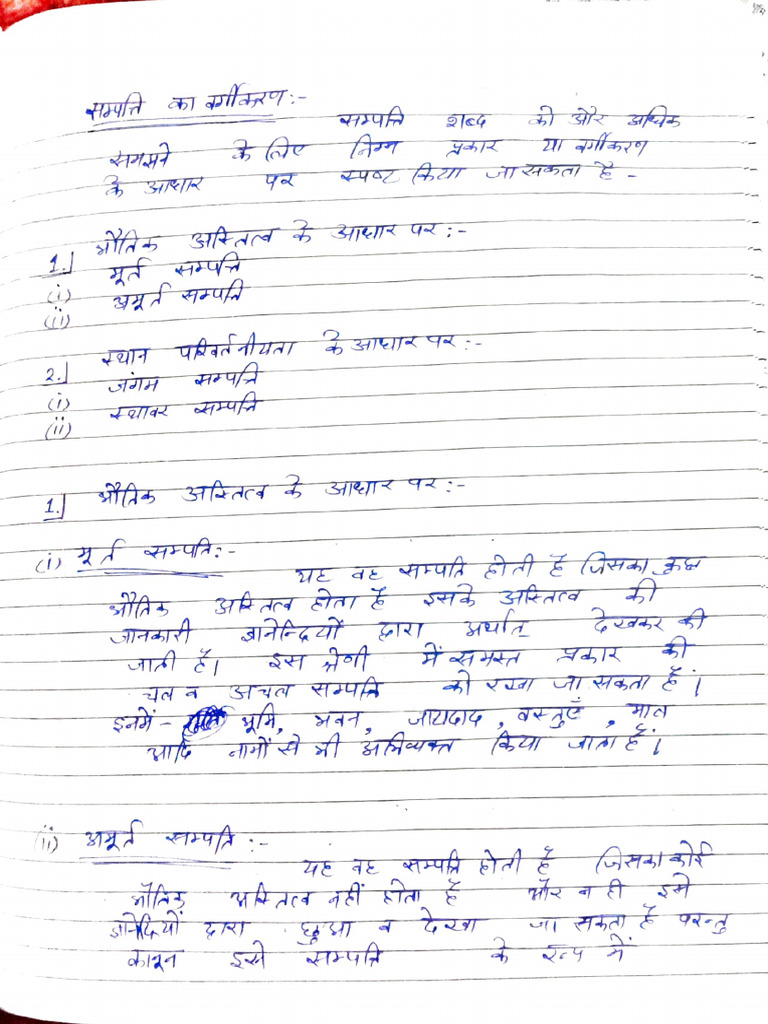 सम्पत्ति का वर्गीकरण:-
सम्पत्ति शब्द को और अधिक
समझने के लिए निम्न प्रकार या वर्गीकरण
के आधार पर स्पष्ट किया जा सकता है -
1.] भौतिक अस्तित्व के आधार पर:-
(i) मूर्त सम्पत्ति
(ii) अमूर्त सम्पत्ति
2.] स्थान परिवर्तनीयता के आधार पर:-
(i) जंगम सम्पत्ति
(ii) स्थावर सम्पत्ति
1.] भौतिक अस्तित्व के आधार पर:-
(i) मूर्त सम्पत्ति:-
यह वह सम्पत्ति होती है जिसका कुछ
भौतिक अस्तित्व होता है इसके अस्तित्व की
जानकारी ज्ञानेन्द्रियों द्वारा अर्थात् देखकर की
जाती है। इस श्रेणी में समस्त प्रकार की
चल व अचल सम्पत्ति को रखा जा सकता है।
इनमें - भूमि, भवन, जायदाद, वस्तुएँ, माल
आदि नामों से भी अभिव्यक्त किया जाता है।
(ii) अमूर्त सम्पत्ति :-
यह वह सम्पत्ति होती है जिसका कोई
भौतिक अस्तित्व नहीं होता है और न ही इसे
ज्ञानेद्रियों द्वारा छुआ व देखा जा सकता है परन्तु
कानून इसे सम्पत्ति के रूप में